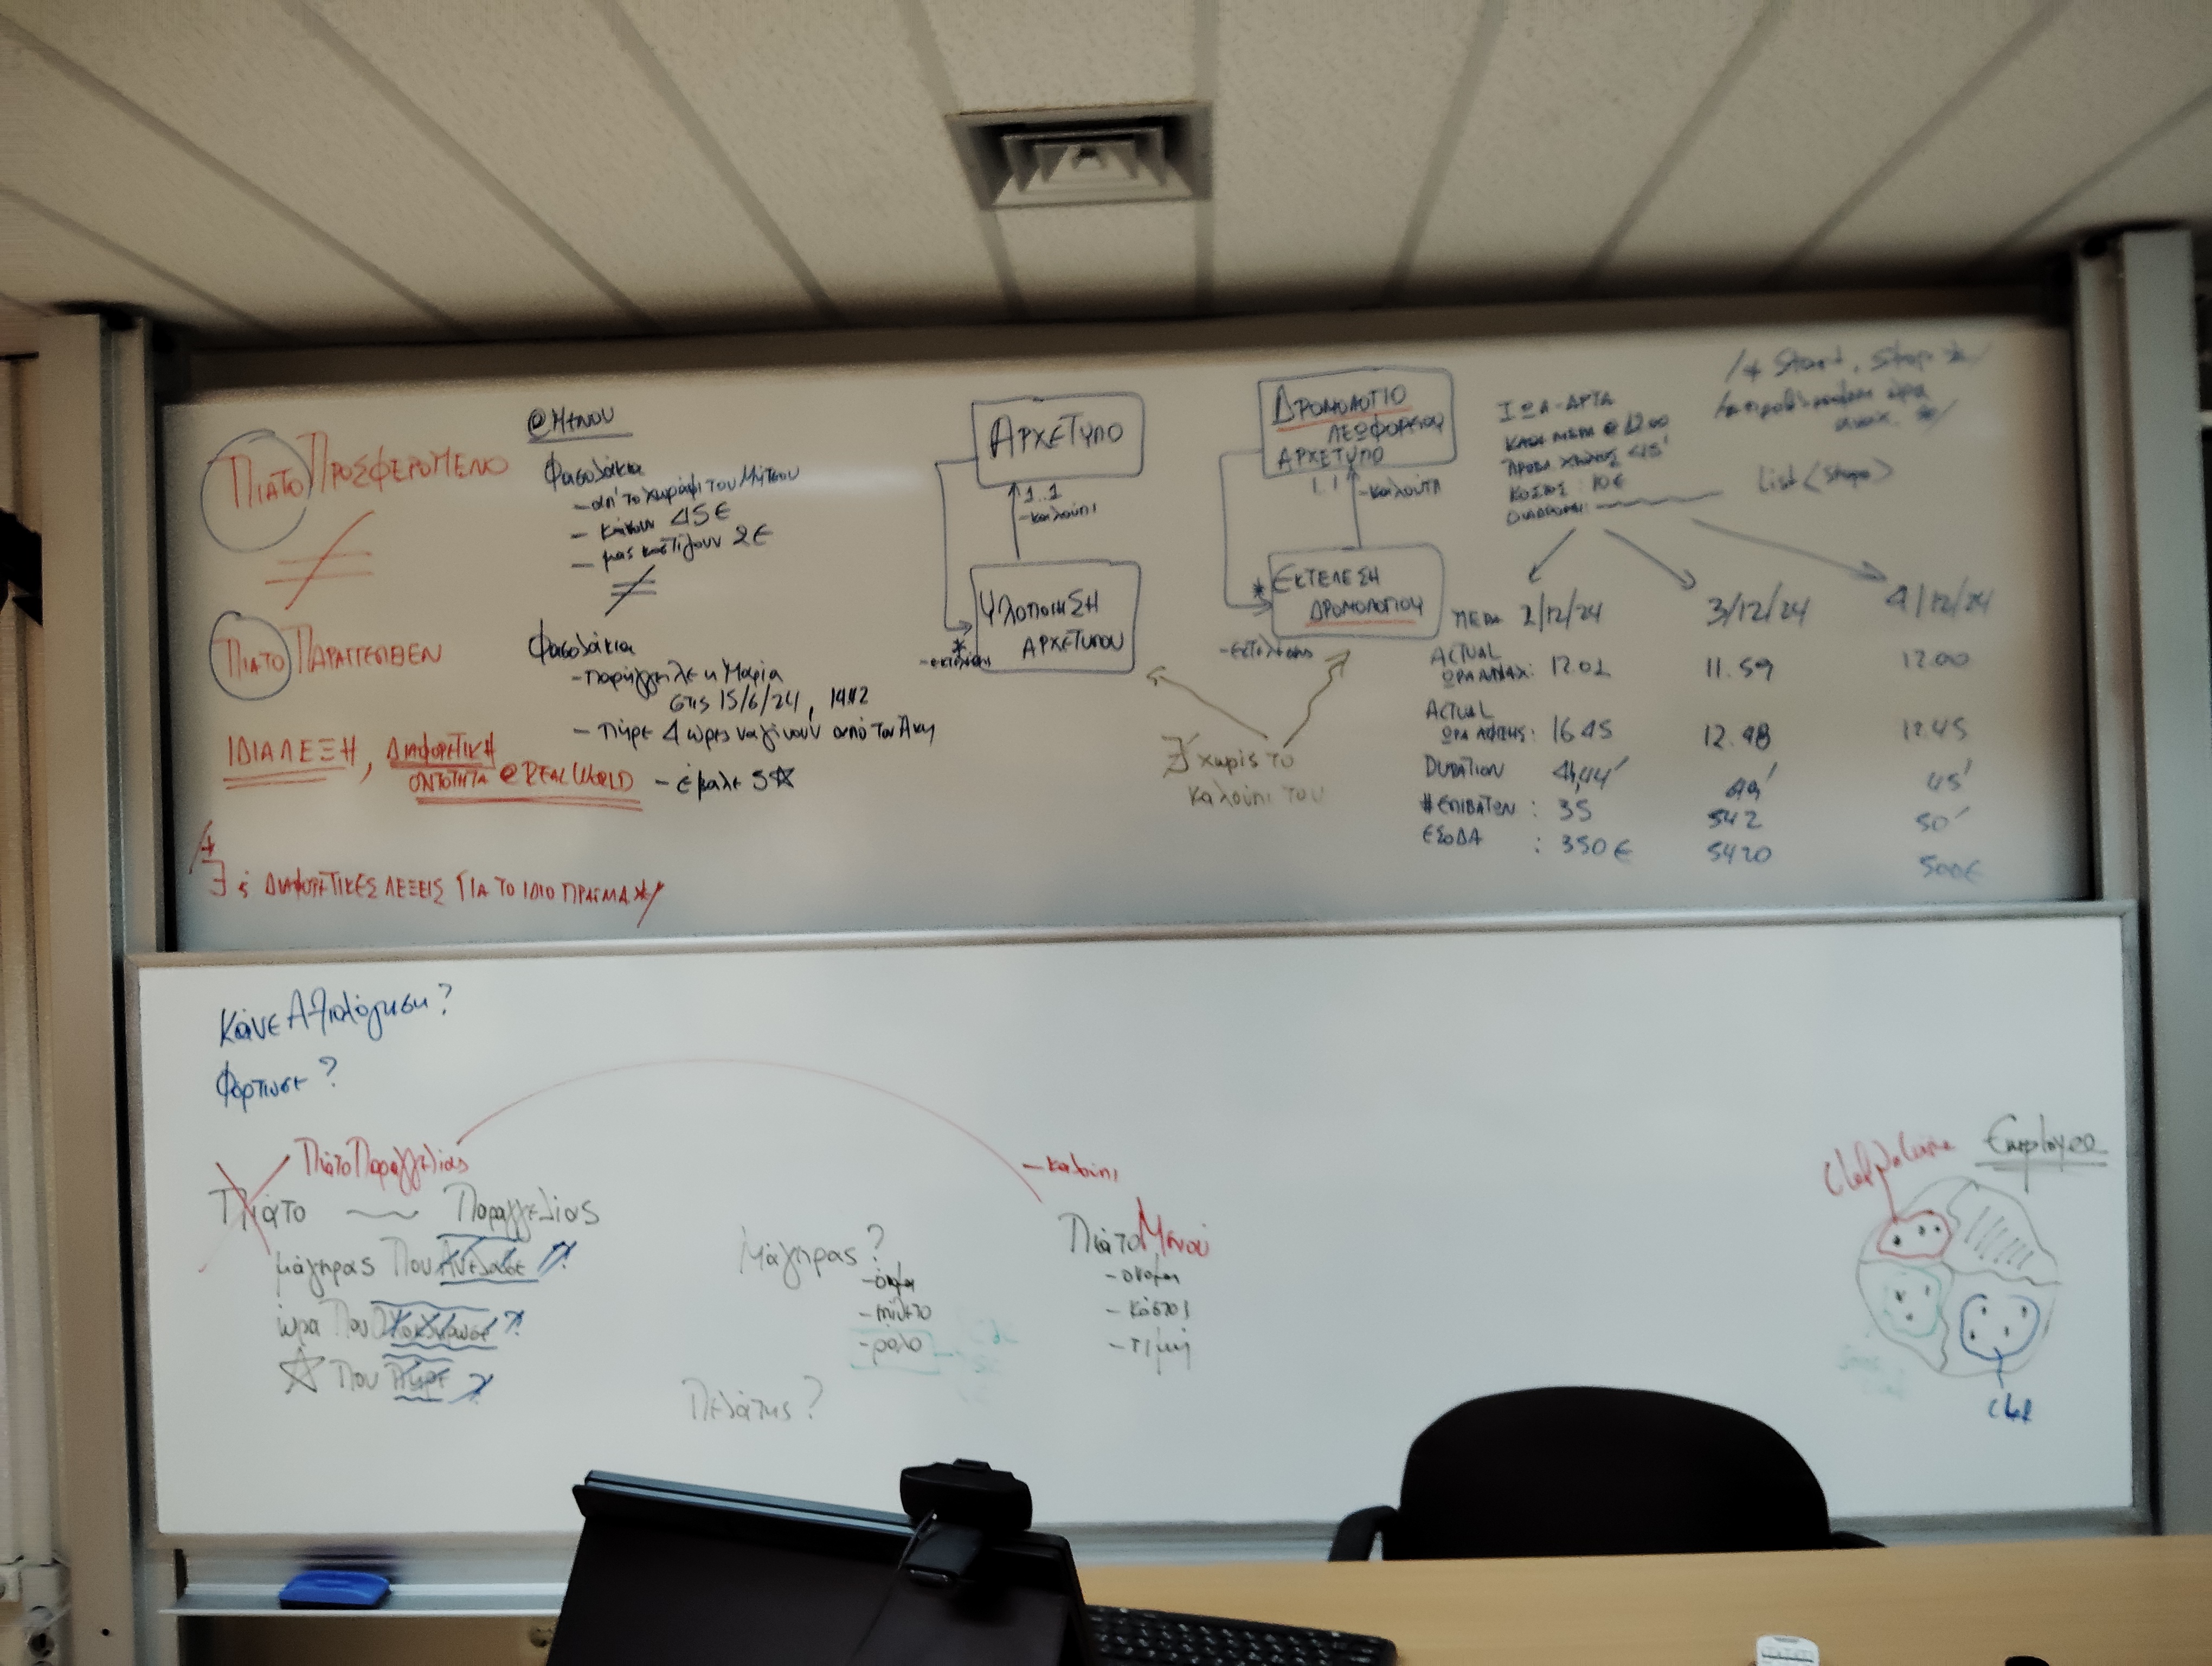 ΠΙΑΤΟ ΠΡΟΣΦΕΡΟΜΕΝΟ
≠
ΠΙΑΤΟ ΠΑΡΑΓΓΕΛΘΕΝ
ΙΔΙΑ ΛΕΞΗ, ΔΙΑΦΟΡΕΤΙΚΗ
ΟΝΤΟΤΗΤΑ @ REAL WORLD
/*
∃ ΔΙΑΦΟΡΕΤΙΚΕΣ ΛΕΞΕΙΣ ΓΙΑ ΤΟ ΙΔΙΟ ΠΡΑΓΜΑ */
@ΜΕΝΟΥ
Φασολάκια
- απ' το χωράφι του Μήτσου
- κάνουν 45€
- μας κοστίζουν 2€
≠
Φασολάκια
- παρήγγειλε η Μαρία
στις 15/6/24,
- πήρε 4 ώρες να γίνουν από τον Άκη
- έβαλε 5☆
ΑΡΧΕΤΥΠΟ
1..1
- καλούπι
ΥΛΟΠΟΙΗΣΗ
ΑΡΧΕΤΥΠΟΥ
*
ΔΡΟΜΟΛΟΓΙΟ
ΛΕΩΦΟΡΕΙΟΥ
ΑΡΧΕΤΥΠΟ
1..1
- καλούπι
*
ΕΚΤΕΛΕΣΗ
ΔΡΟΜΟΛΟΓΙΟΥ
χωρίς το
καλούπι του
ΙΩΑ-ΑΡΤΑ
ΚΑΘΕ ΜΕΡΑ @ 12.00
45'
ΚΟΣΤΟΣ: 10€
ΔΙΑΔΡΟΜΗ:
/* Start, Stop */
List<Stops>
ΜΕΡΑ 2/12/24 3/12/24 4/12/24
ACTUAL
ΩΡΑ ΑΝΑΧ: 12.01 11.59 12.00
ACTUAL
ΩΡΑ ΑΦΙΞΗΣ: 16 45 12.48 12.45
DURATION 4h,44' 49' 45'
#ΕΠΙΒΑΤΩΝ: 35 542 50
ΕΣΟΔΑ : 350€ 5420 500€
Κάνε Αξιολόγηση?
Φόρτωσε?
ΠιάτοΠαραγγελίας
Πιάτο Παραγγελίας
μάγηρας Που Ανέλαβε
ώρα Που
☆ που Πήρε
Μάγηρας?
- όνομα
- ρόλο
Πελάτης?
- καλούπι
ΠιάτοΜενού
- όνομα
- κόστος
- τιμή
Employee
Chef